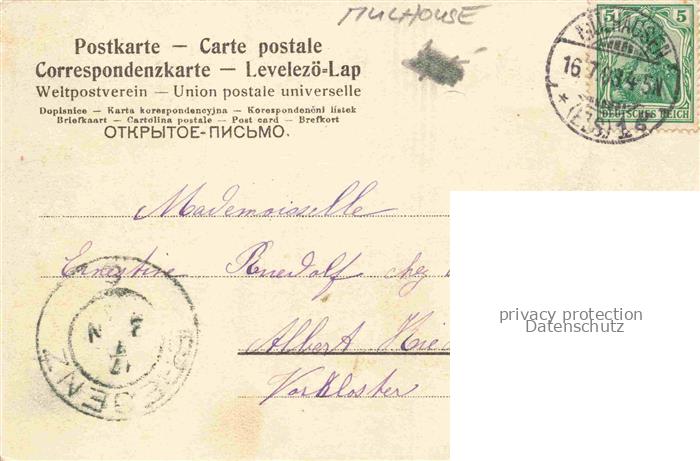 MULHOUSE
Postkarte — Carte postale
Correspondenzkarte — Levelező-Lap
Weltpostverein — Union postale universelle
Dopisnice — Karta korespondencyjna — Korespondenční lístek
Briefkaart — Cartolina postale — Post card — Brefkort
ОТКРЫТОЕ-ПИСЬМО.
5 5
DEUTSCHES REICH
MÜLHAUSEN
16
4-5N
(ELS) 1 e
Mademoiselle
Ernestine Ruedolf chez
Albert
Vorkloster
BREGENZ
privacy protection
Datenschutz